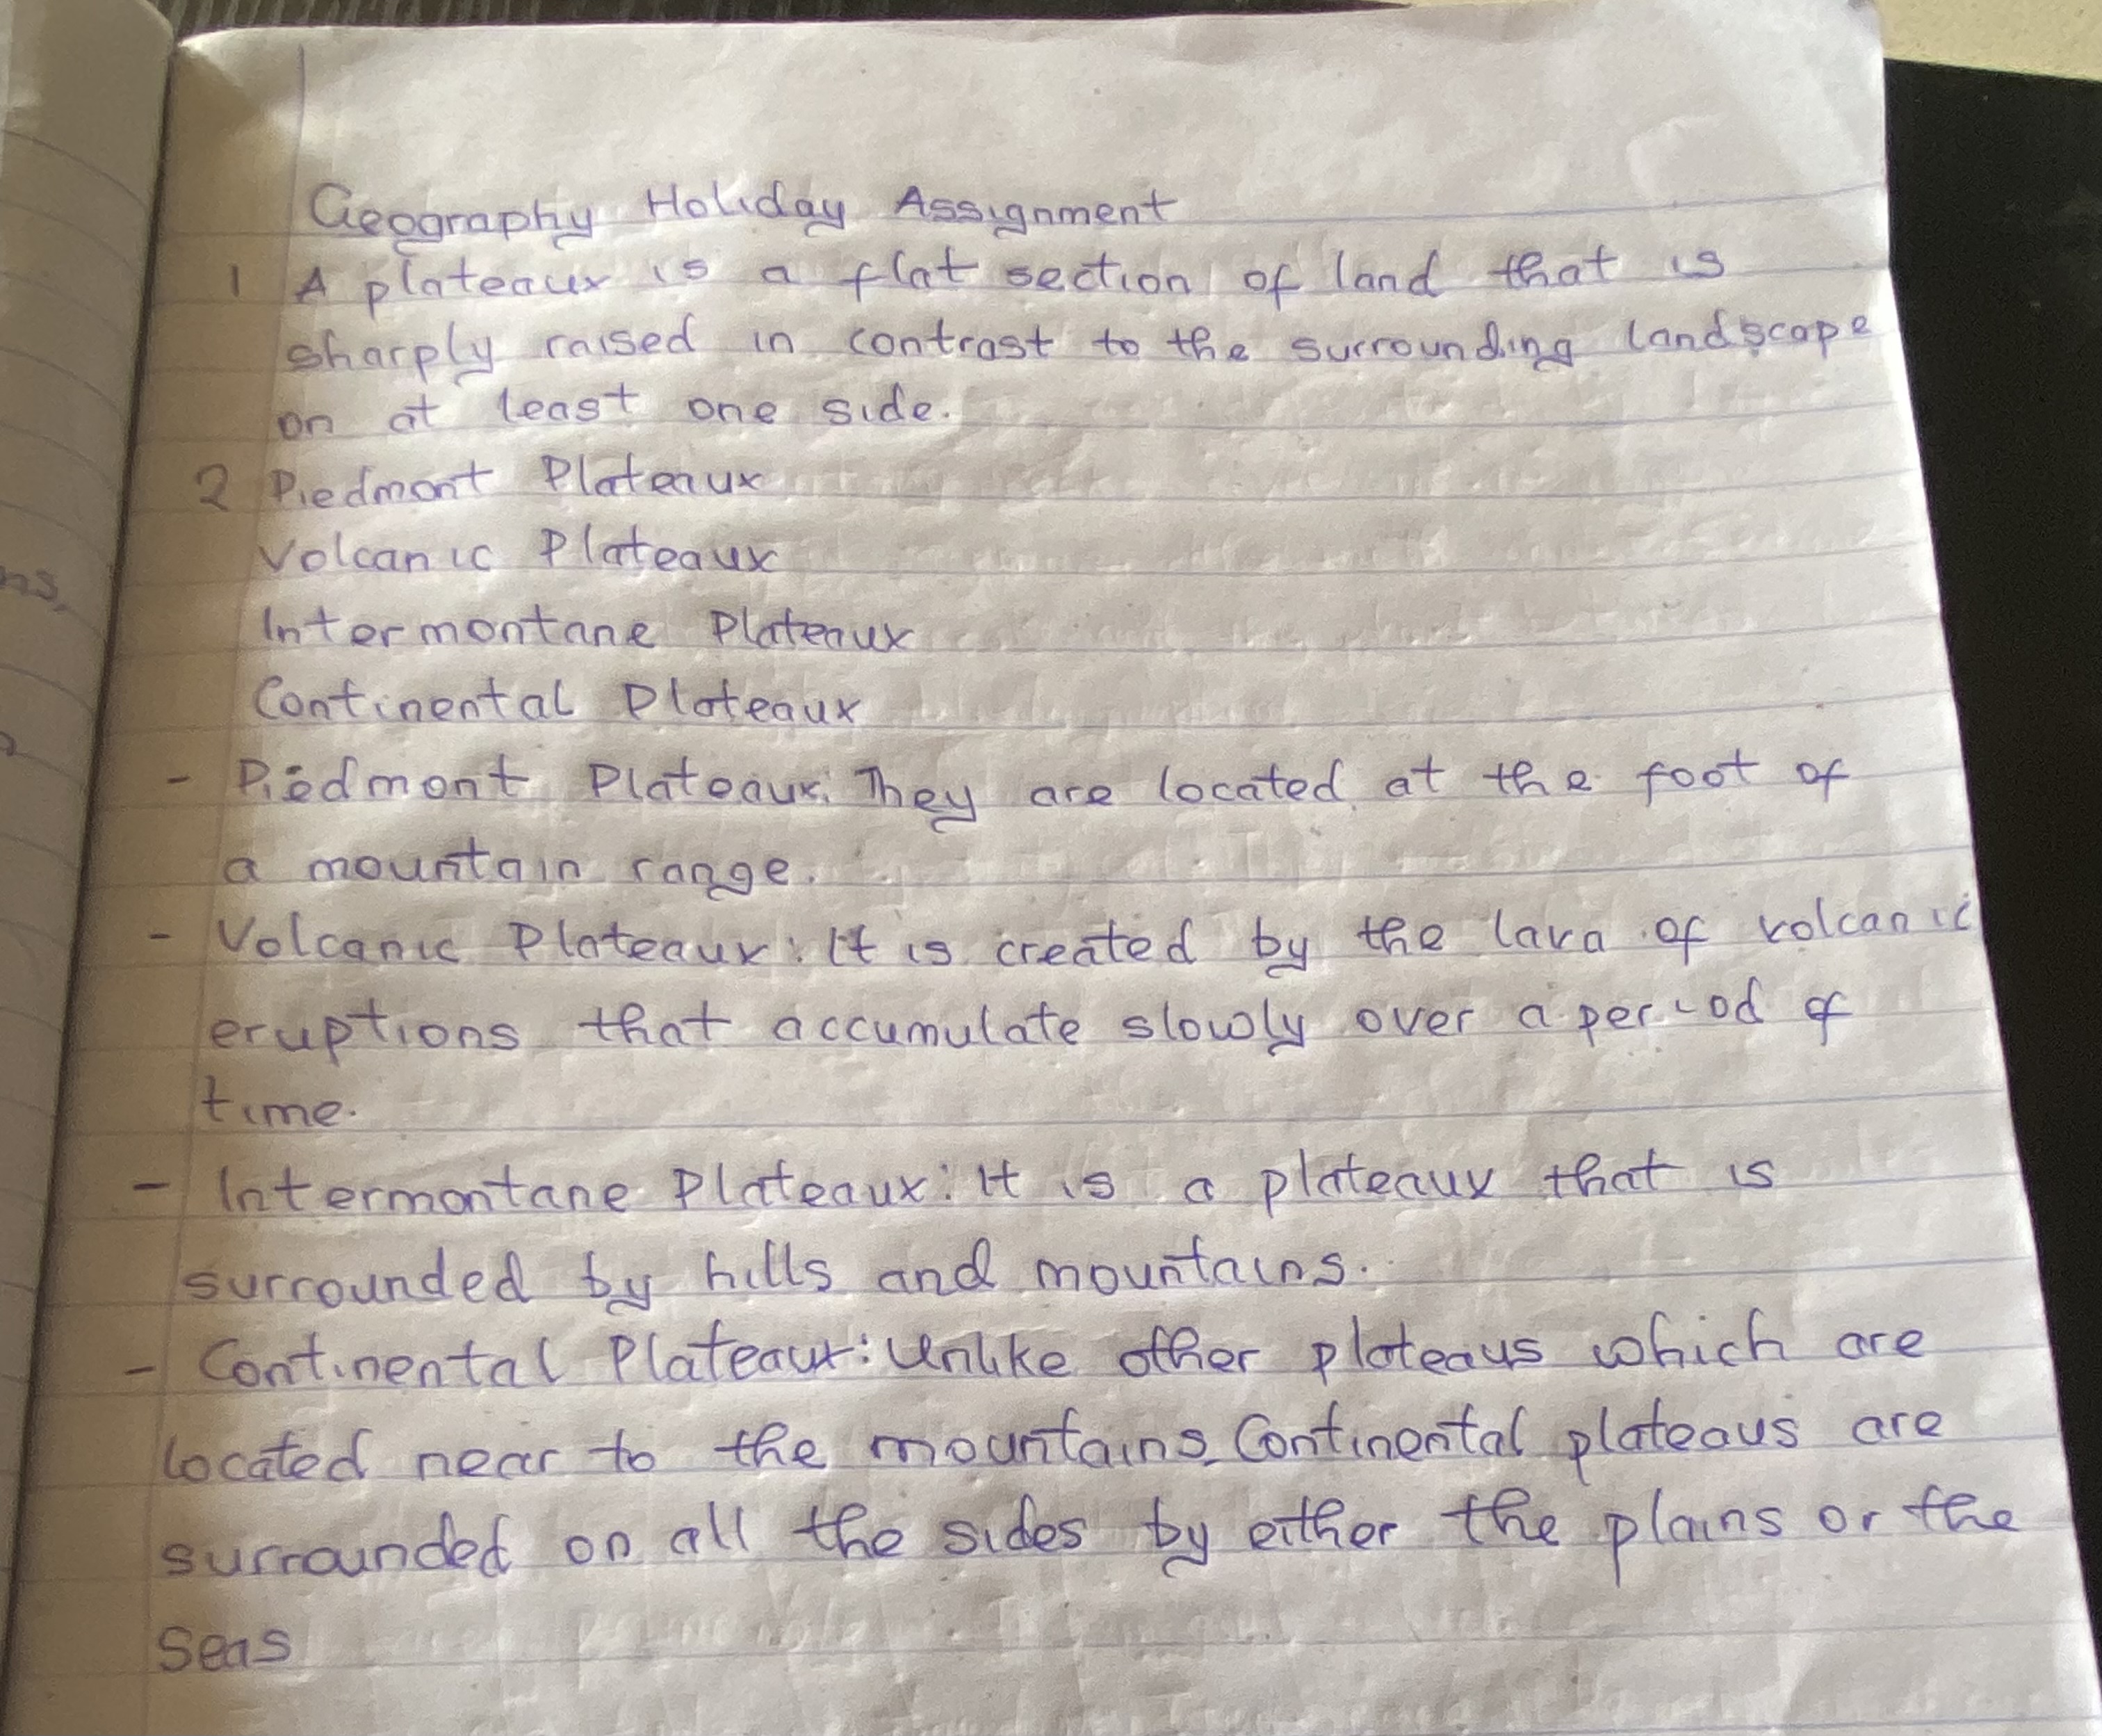 Geography Holiday Assignment
1 A plateaux is a flat section of land that is
sharply raised in contrast to the surrounding landscape
on at least one side.
2 Piedmont Plateaux
Volcanic Plateaux
Intermontane Plateaux
Continental Plateaux
- Piedmont Plateaux: They are located at the foot of
a mountain range.
- Volcanic Plateaux: It is created by the lava of volcanic
eruptions that accumulate slowly over a period of
time.
- Intermontane Plateaux: It is a plateaux that is
surrounded by hills and mountains.
- Continental Plateaux: Unlike other plateaus which are
located near to the mountains, Continental plateaus are
surrounded on all the sides by either the plains or the
seas